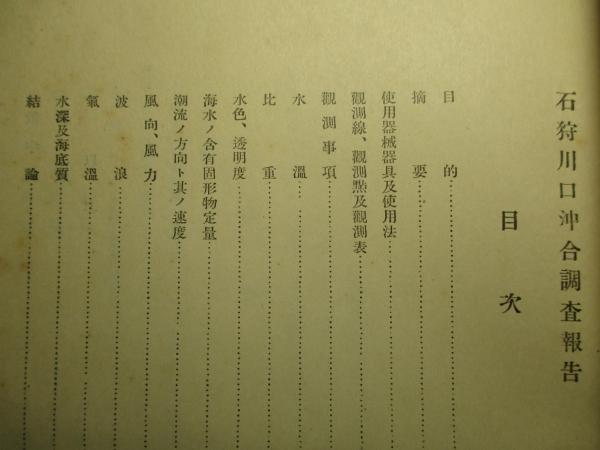 石狩川口沖合調査報告
目次
目的
摘要
使用器械器具及使用法
觀測線、觀測點及觀測表
觀測事項
水溫
比重
水色、透明度
海水ノ含有固形物定量
潮流ノ方向ト其ノ速度
風向、風力
波浪
氣溫
水深及海底質
結論